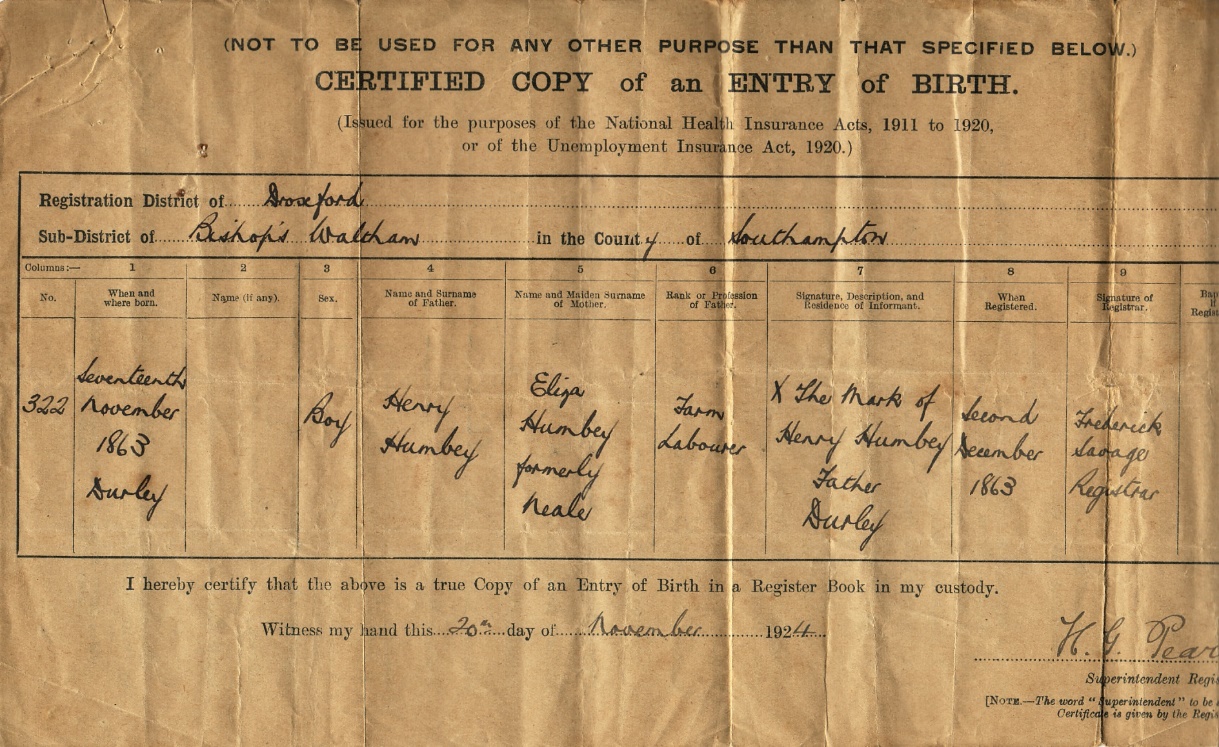 (NOT TO BE USED FOR ANY OTHER PURPOSE THAN THAT SPECIFIED BELOW.)
CERTIFIED COPY of an ENTRY of BIRTH.
(Issued for the purposes of the National Health Insurance Acts, 1911 to 1920,
or of the Unemployment Insurance Act, 1920.)
Registration District of Droxford
Sub-District of Bishop's Waltham in the County of Southampton
Columns:— 1 2 3 4 5 6 7 8 9
No.
When and
where born.
Name (if any).
Sex.
Name and Surname
of Father.
Name and Maiden Surname
of Mother.
Rank or Profession
of Father.
Signature, Description, and
Residence of Informant.
When
Registered.
Signature of
Registrar.
Bap
if
Regist
322
Seventeenth
November
1863
Durley
Boy
Henry
Humbey
Eliza
Humbey
formerly
Neale
Farm
Labourer
X The Mark of
Henry Humbey
Father
Durley
Second
December
1863
Frederick
Savage
Registrar
I hereby certify that the above is a true Copy of an Entry of Birth in a Register Book in my custody.
Witness my hand this 20th day of November 1924
H. G. Pear
Superintendent Regis
[NOTE.—The word "Superintendent" to be
Certificate is given by the Regis